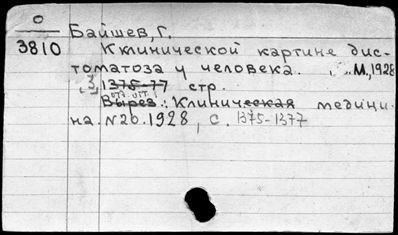 О
Байшев, Г.
3810 К клинической картине дис-
томатоза у человека. М., 1928
1375-77 стр.
отд. отт.
Вырез.: Клиническая медици-
на. №20. 1928, с. 1375-1377